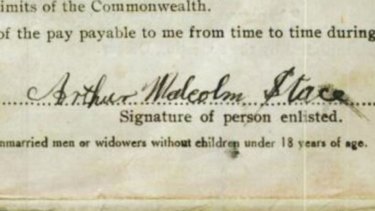 imits of the Commonwealth.
of the pay payable to me from time to time during
Arthur Malcolm Stace
Signature of person enlisted.
nmarried men or widowers without children under 18 years of age.